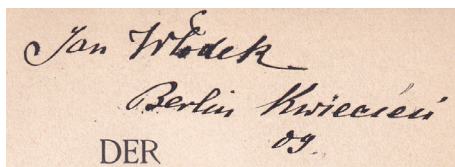 Jan Włodek
Berlin Kwiecień
09.
DER